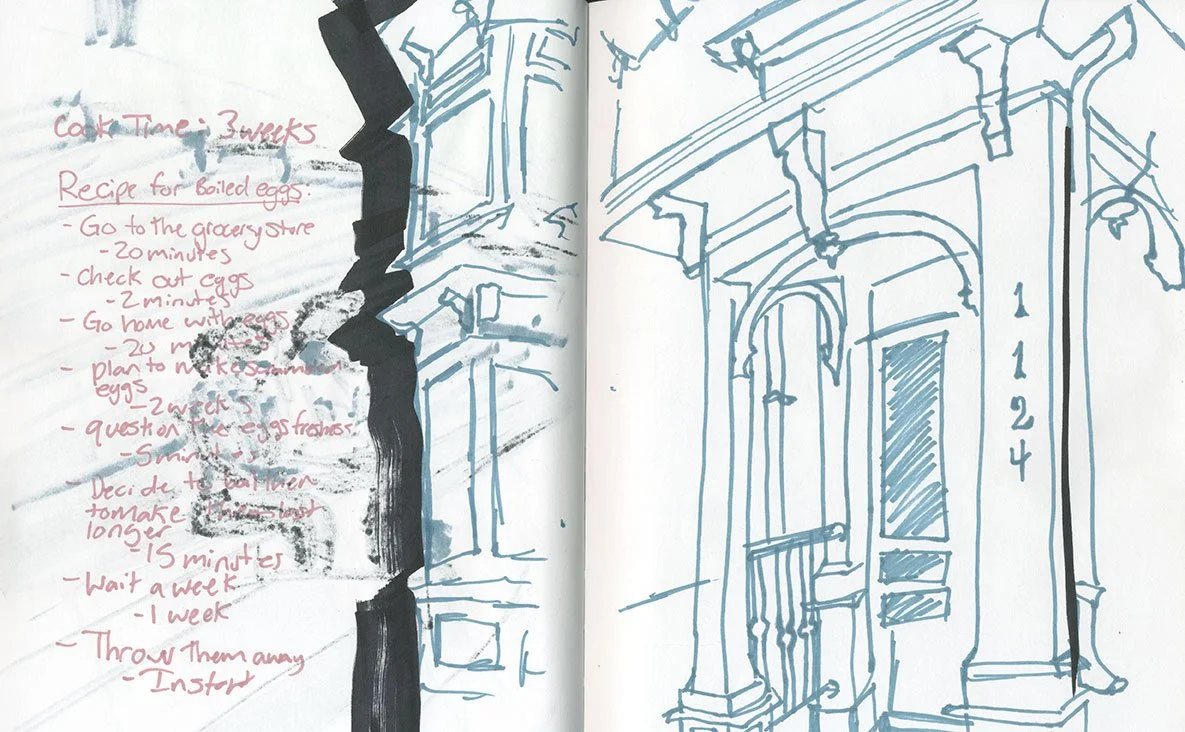 Cook Time: 3 weeks
Recipe for Boiled eggs:
- Go to the grocery store
- 20 minutes
- Check out eggs
- 2 minutes
- Go home with eggs
- 20 minutes
- plan to make
eggs
- 2 weeks
- question the eggs freshness
- 5 minutes
- Decide to boil them
to make them last
longer
- 15 minutes
- Wait a week
- 1 week
- Throw them away
- Instant
1
1
2
4